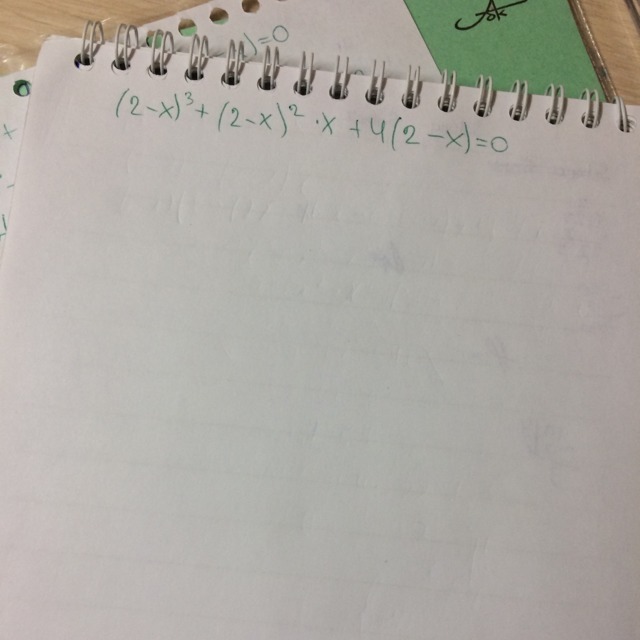 )=0
(2-x)³+(2-x)²·x+4(2-x)=0